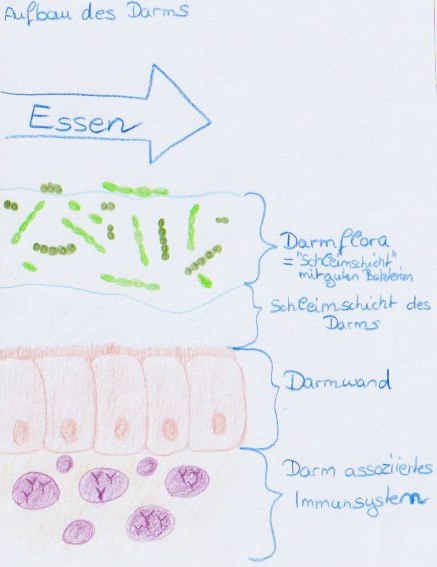 Aufbau des Darms
Essen
Darmflora
= "Schleimschicht"
mit guten Bakterien
Schleimschicht des
Darms
Darmwand
Darm assoziiertes
Immunsystem